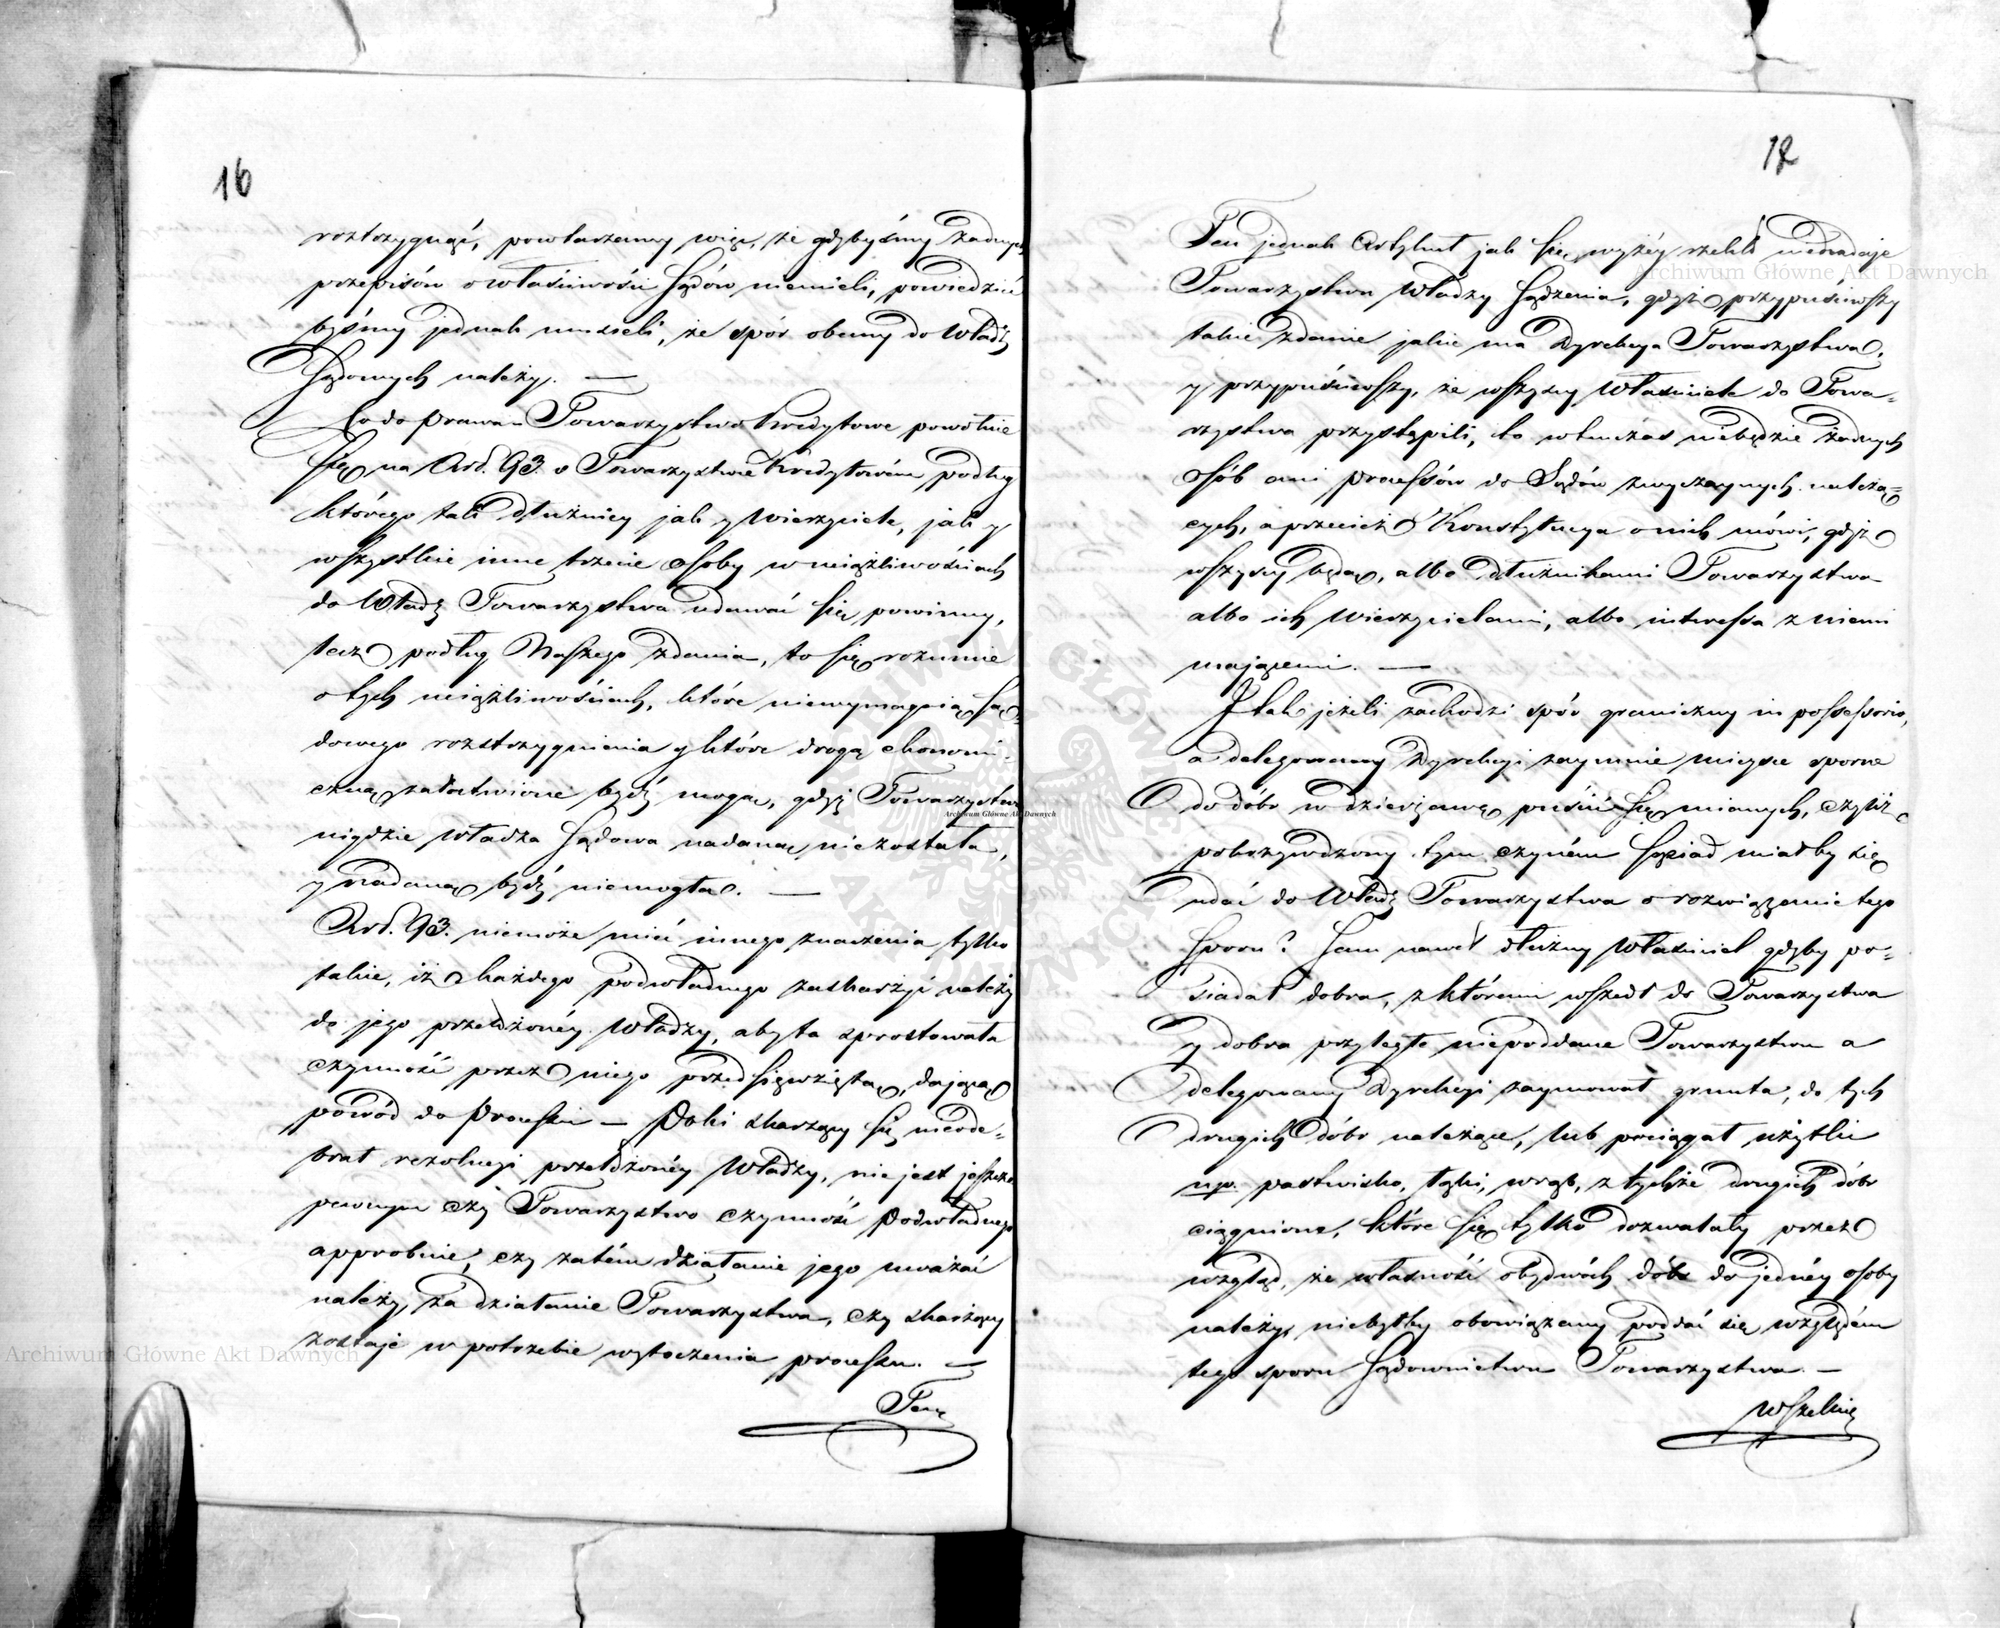 16
roztrzygnąć, powtarzamy więc, że gdybyśmy żadnych
przepisów o właściwości Sądów niemieli, powiedzieć
byśmy jednak musieli, że spór obecny do Władz
Sądowych należy. —
Co do Prawa Towarzystwo Kredytowe powołuie
się na Art. 93. o Towarzystwie Kredytowém podług
którego tak dłużnicy jak y Wierzyciele, jak y
wszystkie inne trzecie osoby w uciążliwościach
do Władz Towarzystwa udawać się powinny,
lecz podług Naszego zdania, to się rozumie
o tych uciążliwościach, które niewymagaią Są-
dowego rozstrzygnienia y które drogą ekonomi-
czną załatwione bydź mogą, gdyż Towarzystwu
nigdzie władza Sądowa nadaną niezostała,
y nadaną bydź niemogła. —
Art. 93. niemoże mieć innego znaczenia tylko
takie, iż każdego podwładnego zaskarżyć należy
do jego przełożonéy Władzy, aby ta sprostowała
czynność przez niego przedsięwziętą, dającą
powód do Processu — Póki skarzący się nieode-
brał rezolucyi przełożonéy Władzy, nie jest jeszcze
pewnym czy Towarzystwo czynność Podwładnego
approbuie, czy zatém działanie jego uważać
należy za działanie Towarzystwa, czy skarżący
zostaje w potrzebie wytoczenia processu. —
Ten
12
Ten jednak Artykuł jak się wyżéy rzekło nienadaje
Towarzystwu Władzy Sądzenia, gdyż przypuściwszy
takie zdanie jakie ma Dyrekcya Towarzystwa,
y przypuściwszy, że wszyscy Właściciele do Towa-
rzystwa przystąpili, to wtenczas niebędzie żadnych
osób ani processów do Sądów zwyczaynych należą-
cych, a przecież Konstytucya o nich mówi, gdyż
wszyscy będą, albo dłużnikami Towarzystwa
albo ich Wierzycielami, albo interessa z niemi
mającemi. —
I tak jeżeli zachodzi spór graniczny in possessorio,
a delegowany Dyrekcyi zaymuie mieysce sporne
do dóbr w dzierżawę puścić się mianych, czyliż
pokrzywdzony tym czynem Sąsiad miałby się
udać do Władz Towarzystwa o rozwiązanie tego
Sporu? Sam nawet dłużny Właściciel gdyby po-
siadał dobra, z któremi wszedł do Towarzystwa
y dobra przyległe niepoddane Towarzystwu a
delegowany Dyrekcyi zaymował grunta, do tych
drugich dóbr należące, lub pociągał użytki
np. pastwisko, łąki, wrąb, z tychże drugich dóbr
ciągnione, które się tylko dozwalały przez
wzgląd, że własność obydwóch dóbr do jednéy osoby
należy, niebyłby obowiązany poddać się względem
tego sporu Sądownictwu Towarzystwa. —
Wszelkie
Archiwum Główne Akt Dawnych
Archiwum Główne Akt Dawnych
Archiwum Główne Akt Dawnych